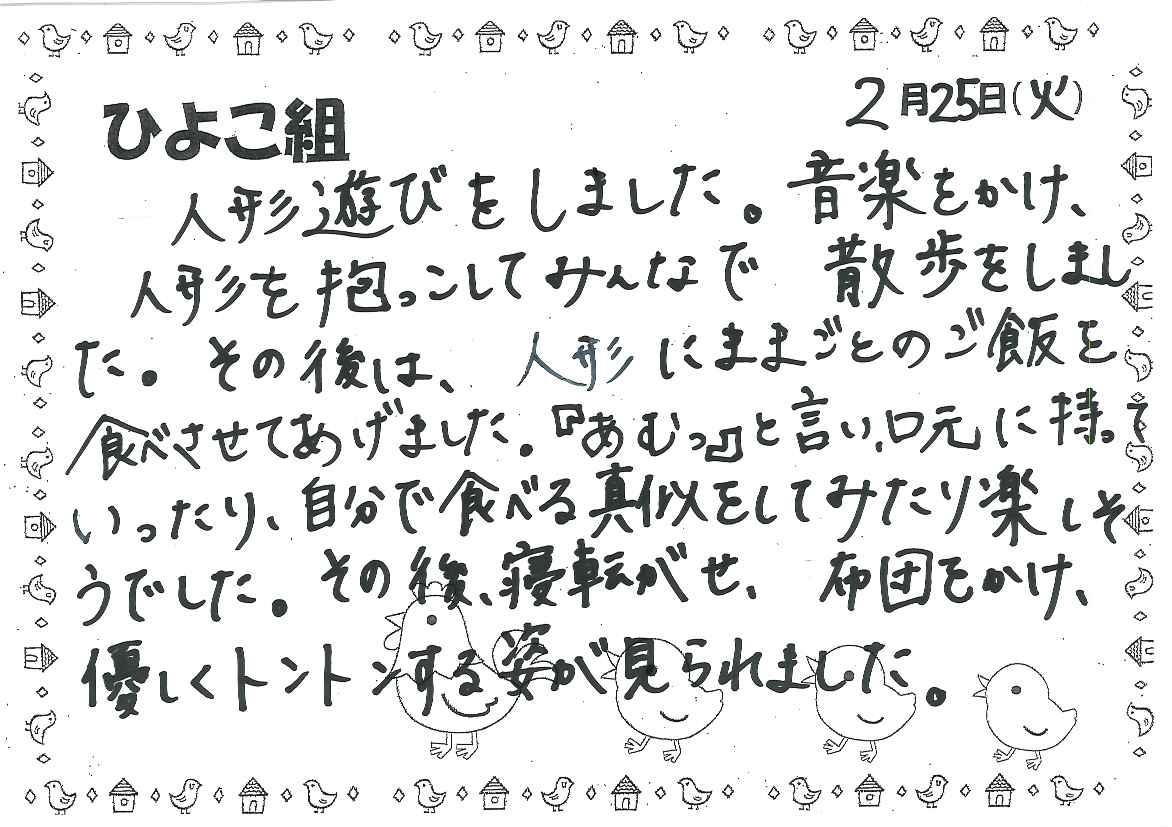 ひよこ組
2月25日(火)
人形遊びをしました。音楽をかけ、
人形を抱っこしてみんなで 散歩をしまし
た。その後は、人形にままごとのご飯を
食べさせてあげました。『あむっ』と言い、口元に持って
いったり、自分で食べる真似をしてみたり楽しそ
うでした。その後、寝転がせ、布団をかけ、
優しくトントンする姿が見られました。